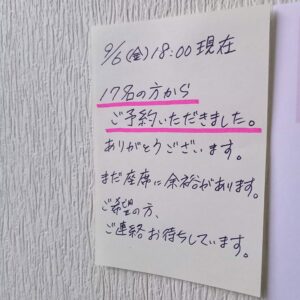 9/6(金)18:00現在
17名の方から
ご予約いただきました。
ありがとうございます。
まだ座席に余裕があります。
ご希望の方、
ご連絡お待ちしています。